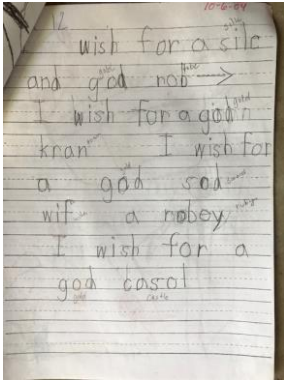 10-6-04
12
wish for a silc
and god rob
I wish for a god
kran I wish for
a god sod
wif a robey
I wish for a
god casol
castle